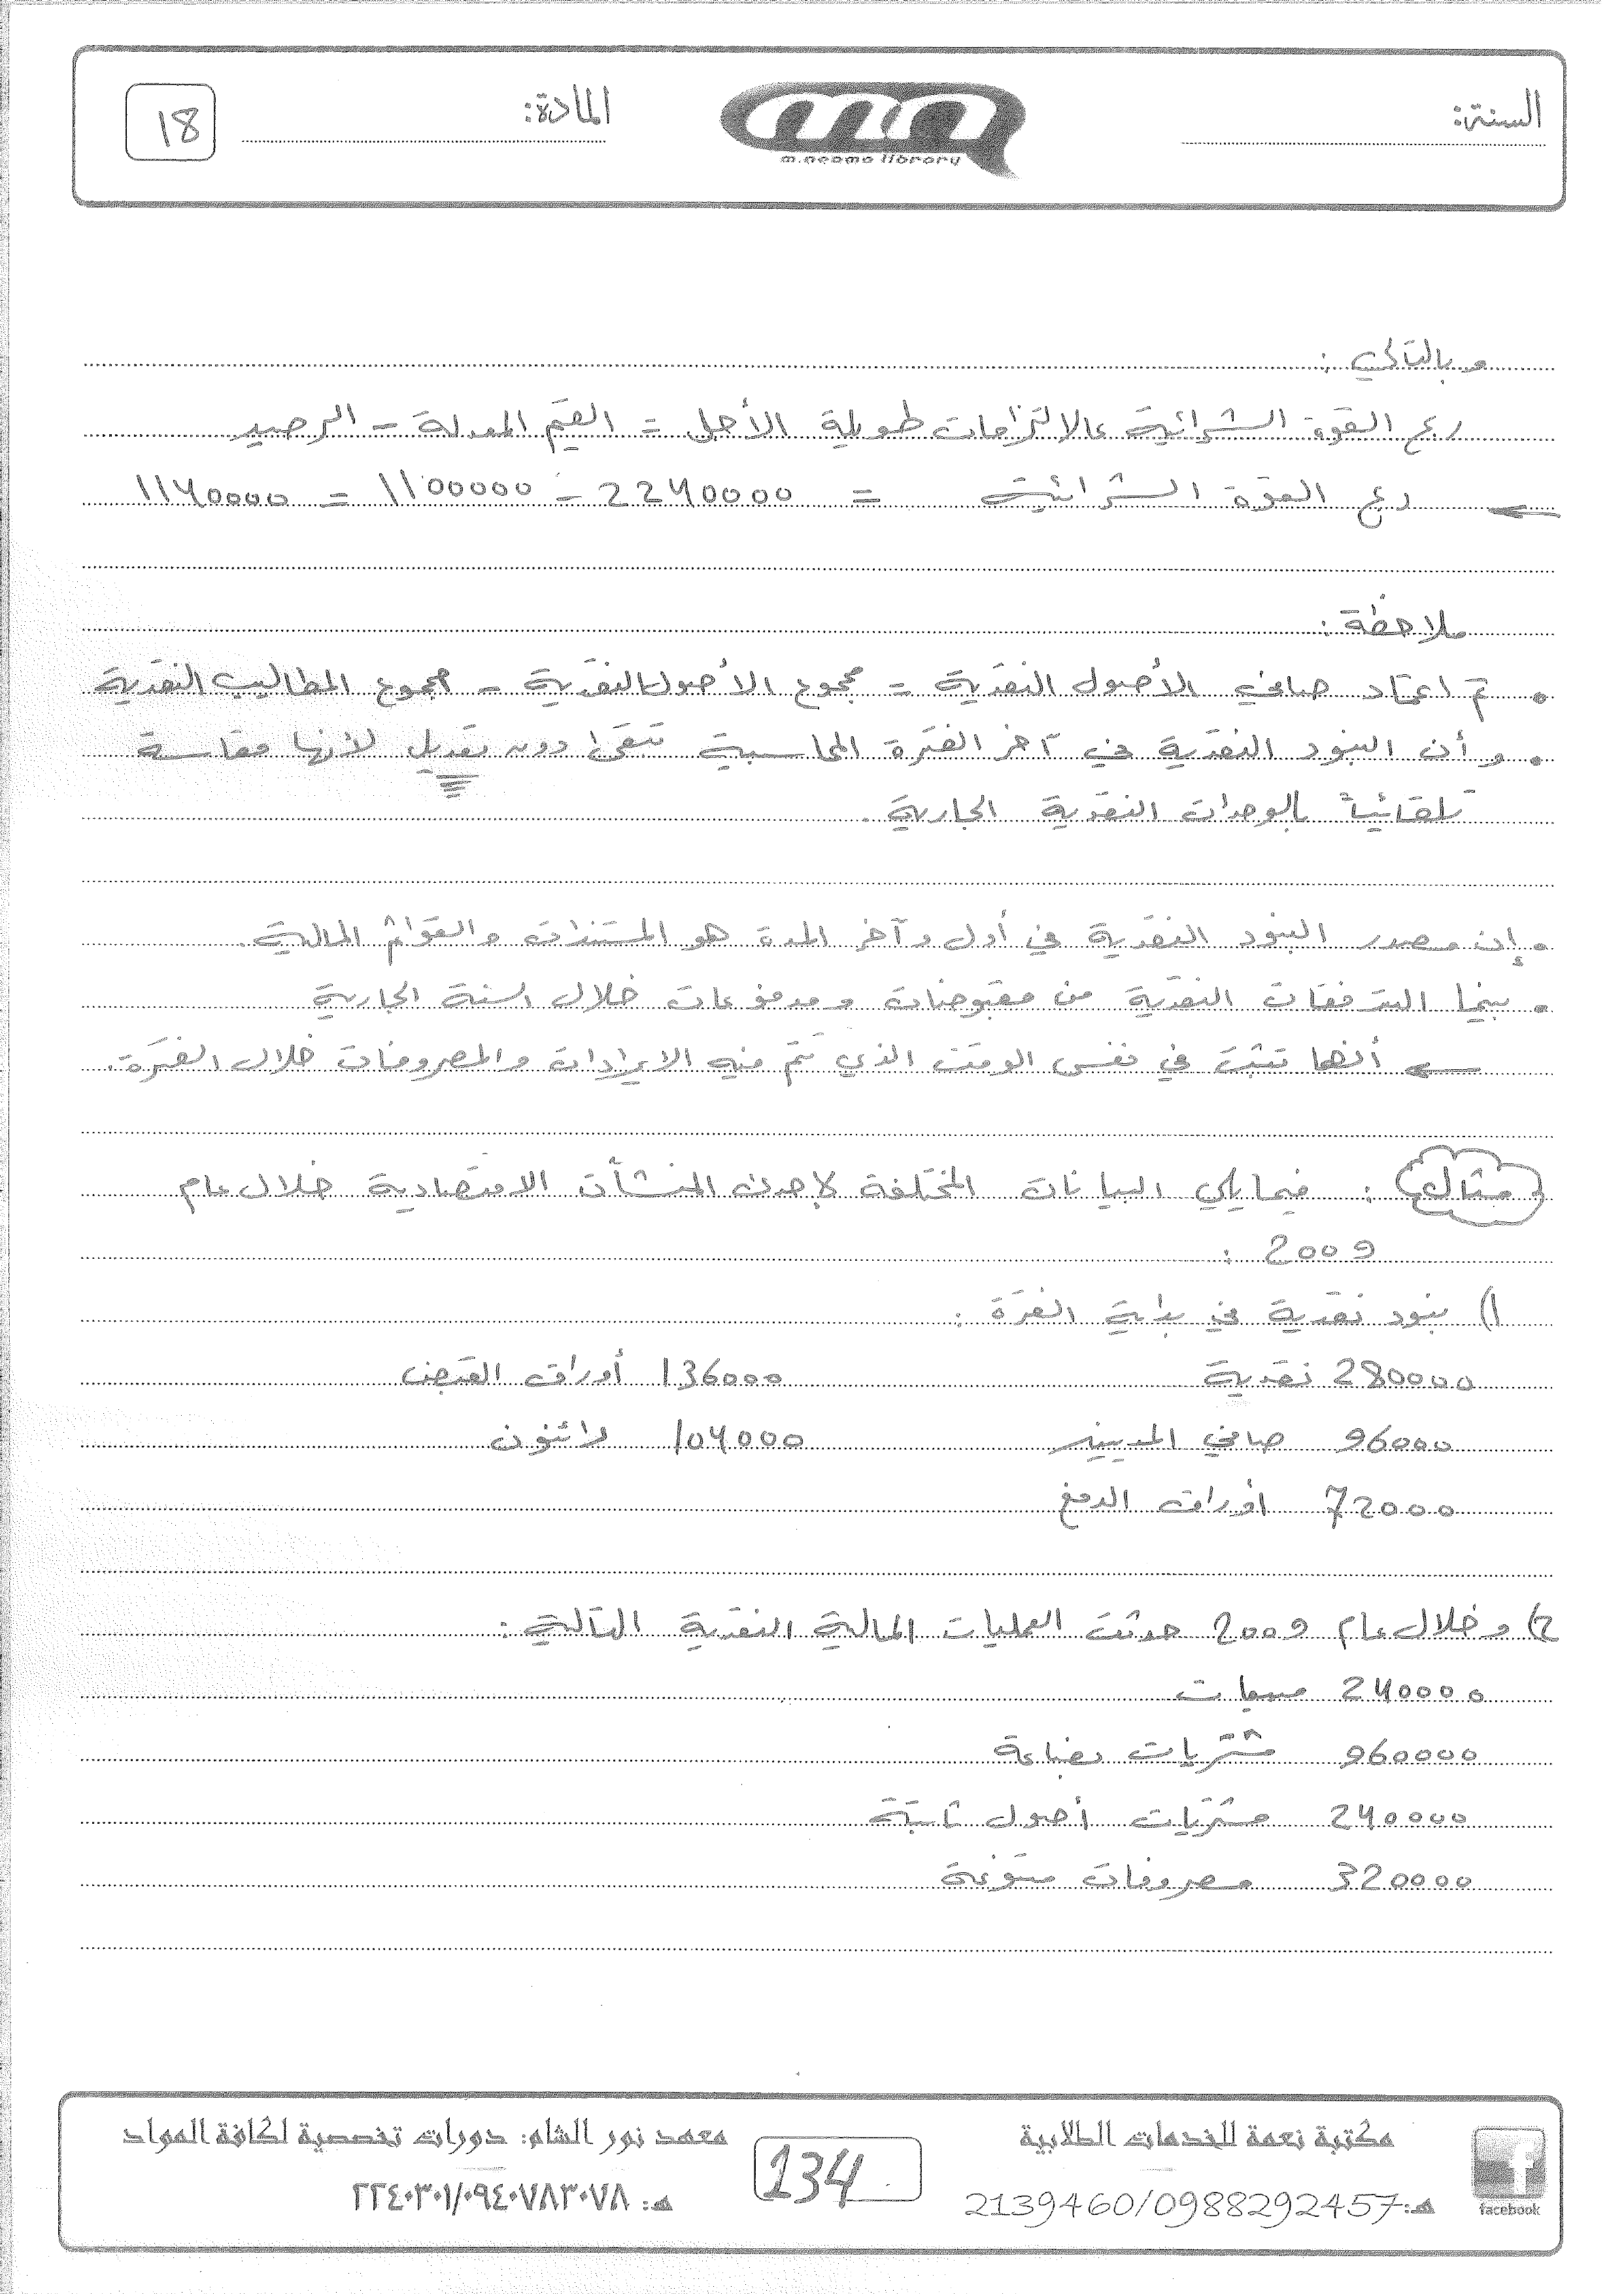 السنة:
m.neama library
المادة:
18
وبالتالي :
ربح القوة الشرائية عالالتزامات طويلة الأجل = القيم المعدلة - الرصيد
ربح القوة الشرائية = 2240000 - 1100000 = 1140000
ملاحظة :
• تم اعتماد صافي الأصول النقدية = مجموع الأصول النقدية - مجموع المطاليب النقدية
• وأن البنود النقدية في آخر الفترة المحاسبية تبقى دون تعديل لأنها مقاسة
تلقائياً بالوحدات النقدية الجارية .
• إن مصدر البنود النقدية في أول وآخر المدة هو المستندات والقوائم المالية .
• بينما التدفقات النقدية من مقبوضات ومدفوعات خلال السنة الجارية
أنها تثبت في نفس الوقت الذي تتم فيه الايرادات والمصروفات خلال الفترة .
مثال : فيما يلي البيانات المختلفة لإحدى المنشآت الاقتصادية خلال عام
2009 :
1) بنود نقدية في بداية الفترة :
280000 نقدية 136000 أوراق القبض
96000 صافي المدينين 104000 دائنون
72000 أوراق الدفع
2) وخلال عام 2009 حدثت العمليات المالية النقدية التالية :
240000 مبيعات
960000 مشتريات بضاعة
240000 مشتريات أصول ثابتة
320000 مصروفات متنوعة
facebook
مكتبة نعمة للخدمات الطلابية
هـ: 2139460/0988292457
134
معهد نور الشام: دورات تخصصية لكافة المواد
هـ: ٢٢٤٠٣٠١/٠٩٤٠٧٨٣٠٧٨